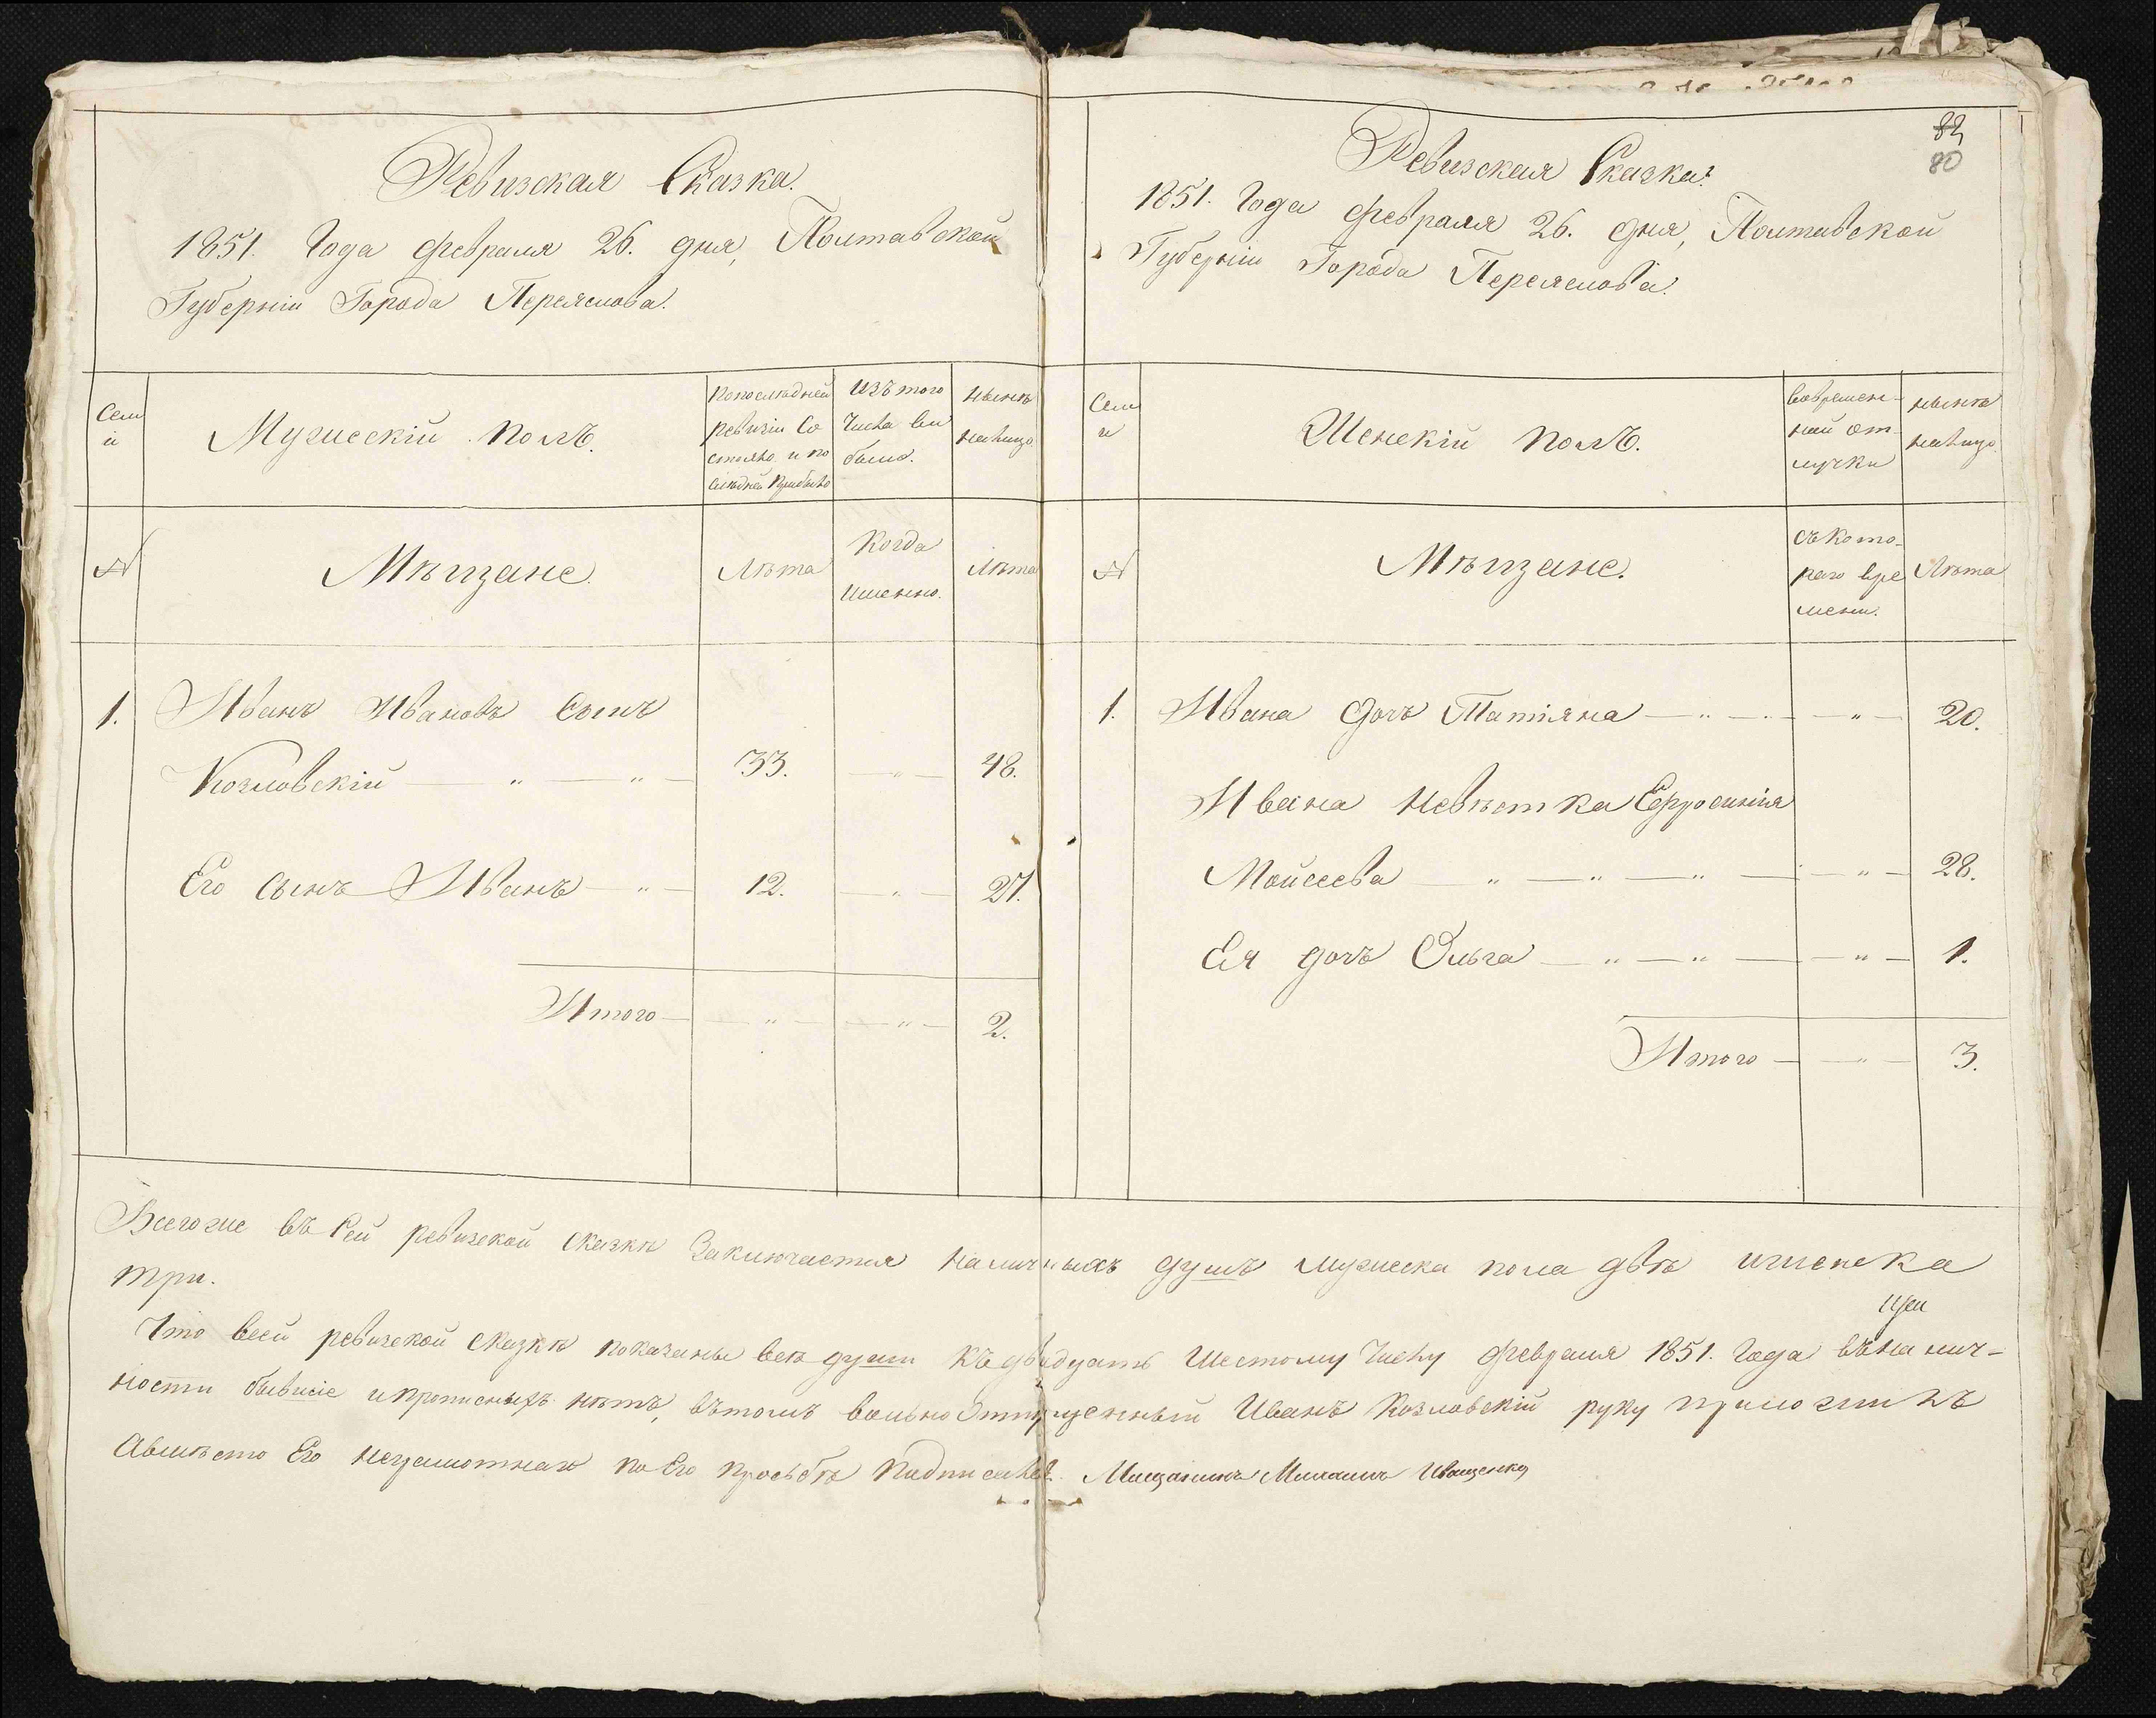 Ревизская Сказка.
1851. Года февраля 26. дня, Полтавской
Губерніи Города Переяслова.
Семьи
Мужескій полъ.
По последней ревизіи Состояло и после дней прибыло
Изъ того Числа выбыло.
Нынѣ налицо
№
Мѣщане.
Лѣта
Когда именно.
Лѣта
1. Иванъ Ивановъ Сынъ
Козловскій — „ — „ — 33. — „ — 48.
Его Сынъ Иванъ — „ — 12. — „ — 27.
Итого — — „ — — „ — 2.
82
80
Ревизская Сказка.
1851. Года февраля 26. дня, Полтавской
Губерніи Города Переяслова.
Семьи
Женскій полъ.
Во времен-
ной от-
лучки
нынѣ
налицо.
№
Мѣщане.
съ кото-
раго вре
мени.
Лѣта
1. Ивана дочь Татіяна — „ — „ — „ — 20.
Ивана невѣстка Ефросинія
Мойсеева — „ — „ — „ — „ — 28.
Ея дочь Ольга — „ — „ — „ — 1.
Итого — — „ — 3.
Всего же въ Сей ревизской сказкѣ Заключается наличныхъ душъ мужеска пола двѣ и женска
три.
Что въ сей ревизской сказкѣ показаны всѣ души къ двадцать Шестому Числу февраля 1851. Года въ налич-
ности бывшіе и прописныхъ нѣтъ, въ томъ вольно Отпущенный Иванъ Козловскій руку приложилъ
А вместо Его неграмотнаго по Его просьбѣ Подписалъ. Мещанинъ Михаилъ Иващенко